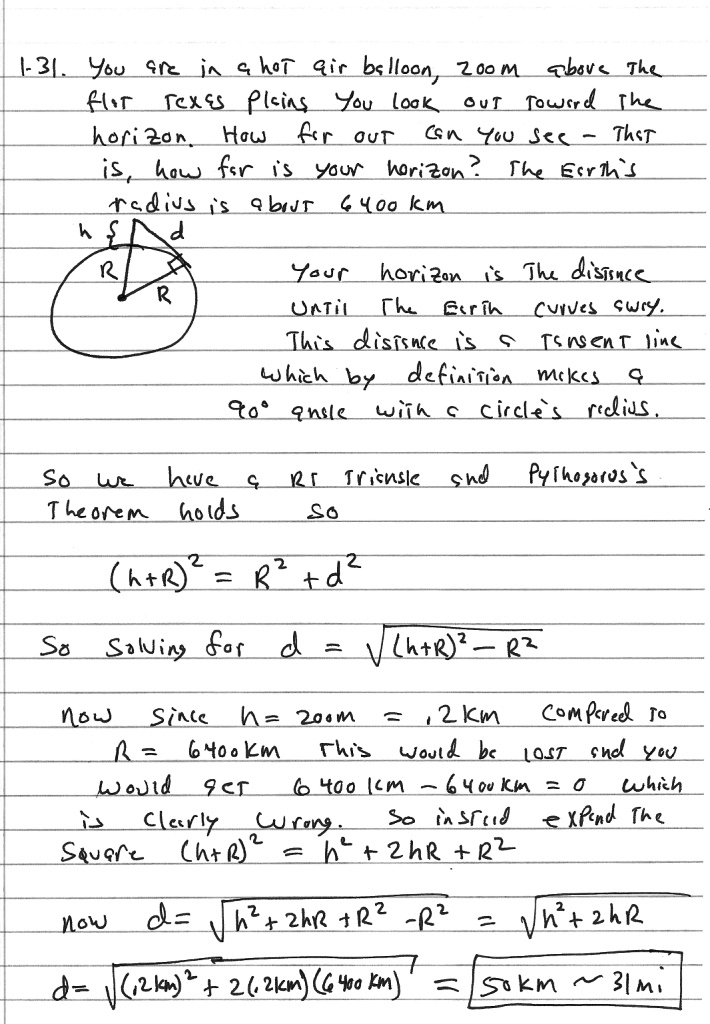 1-31. You are in a hot air balloon, 200m above the
flat Texas plains You look out toward the
horizon. How far out can you see – That
is, how far is your horizon? The Earth's
radius is about 6400 km
h { d
R
R
Your horizon is the distance
until the Earth curves away.
This distance is a tangent line
which by definition makes a
90° angle with a circle's radius.
So we have a RT Triangle and Pythagorus's
Theorem holds so
(h+R)² = R² + d²
So Solving for d = √(h+R)² – R²
now since h = 200m = .2 km compared to
R = 6400 km This would be lost and you
would get 6400 km – 6400 km = 0 which
is clearly wrong. So instead expand the
Square (h+R)² = h² + 2hR + R²
now d = √h² + 2hR + R² - R² = √h² + 2hR
d = √(.2 km)² + 2(.2km)(6400 km) = 50 km ~ 31 mi